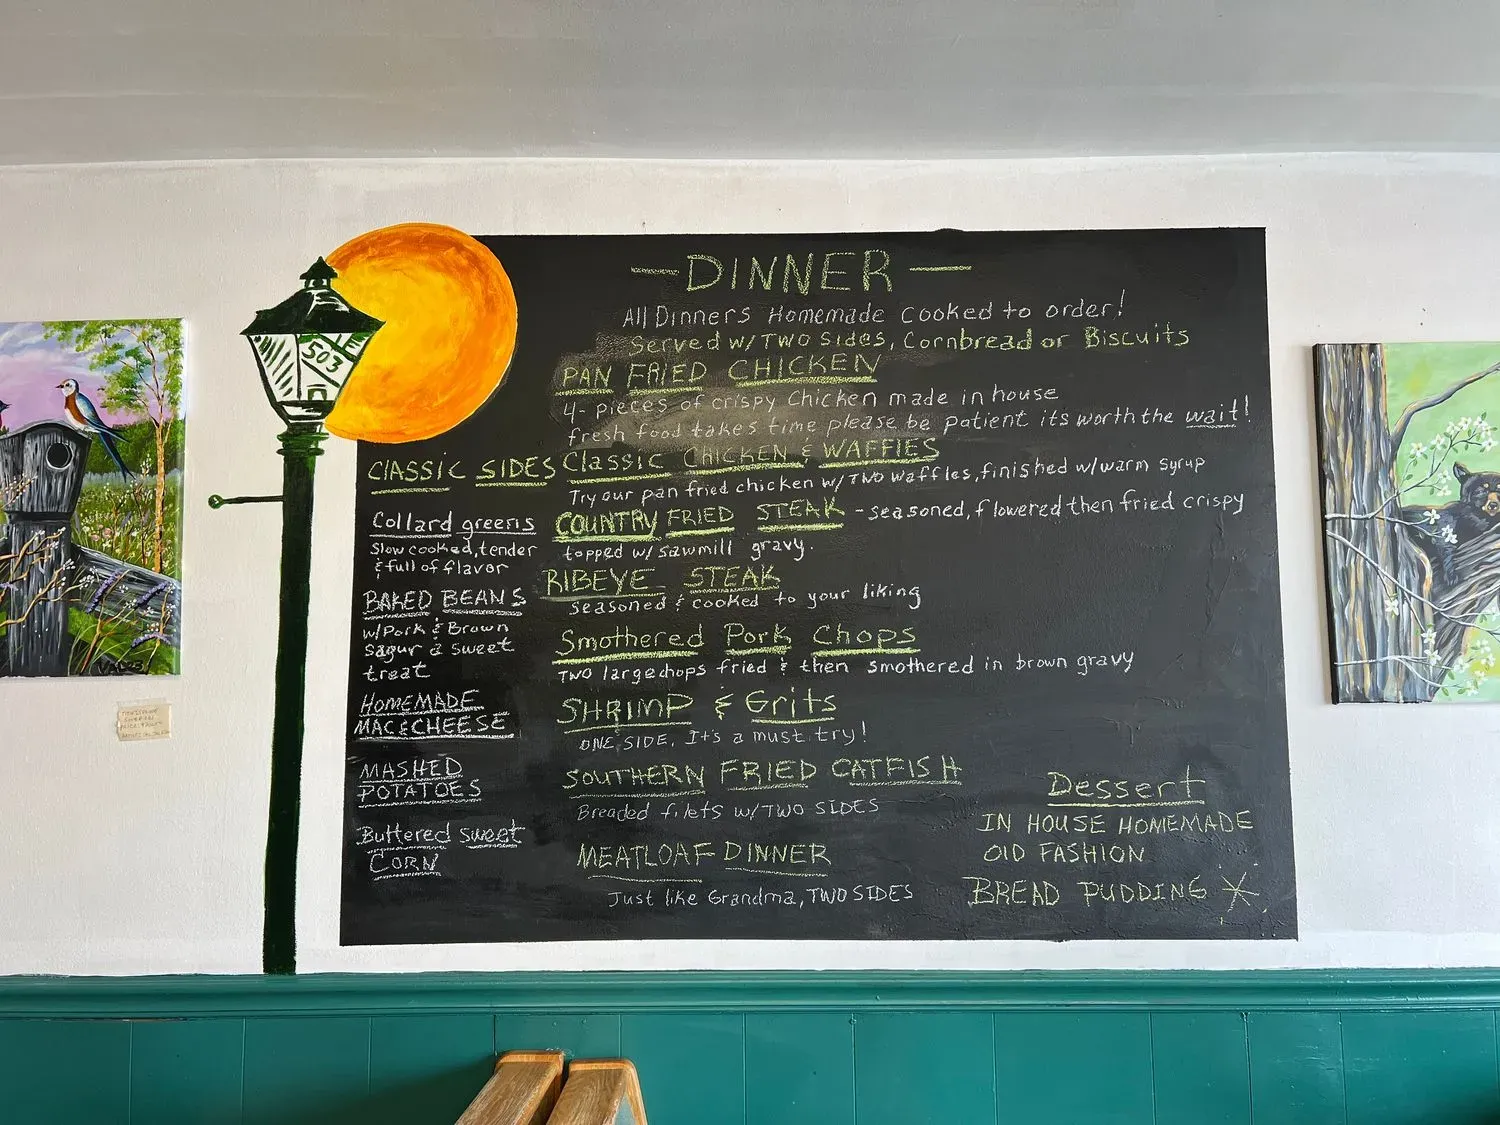 — DINNER —
All Dinners Homemade cooked to order!
Served w/ TWO SIDES, Cornbread or Biscuits
PAN FRIED CHICKEN
4- pieces of crispy chicken made in house
fresh food takes time please be patient its worth the wait!
Classic CHICKEN & WAFFlES
Try our pan fried chicken w/ TWO waffles, finished w/warm syrup
COUNTRY FRIED STEAK - seasoned, flowered then fried crispy
topped w/ sawmill gravy.
RIBEYE STEAK
seasoned & cooked to your liking
Smothered Pork Chops
TWO large chops fried & then smothered in brown gravy
SHRIMP & Grits
ONE SIDE. It's a must try!
SOUTHERN FRIED CATFISH
Breaded filets w/ TWO SIDES
MEATLOAF DINNER
Just like Grandma, TWO SIDES
ClASSIC SIDES
Collard greens
Slow cooked, tender
& full of flavor
BAKED BEANS
w/Pork & Brown
sagur a sweet
treat
HOMEMADE
MAC&CHEESE
MASHED
POTATOES
Buttered sweet
CORN
Dessert
IN HOUSE HOMEMADE
OlD FASHION
BREAD PUDDING *
503